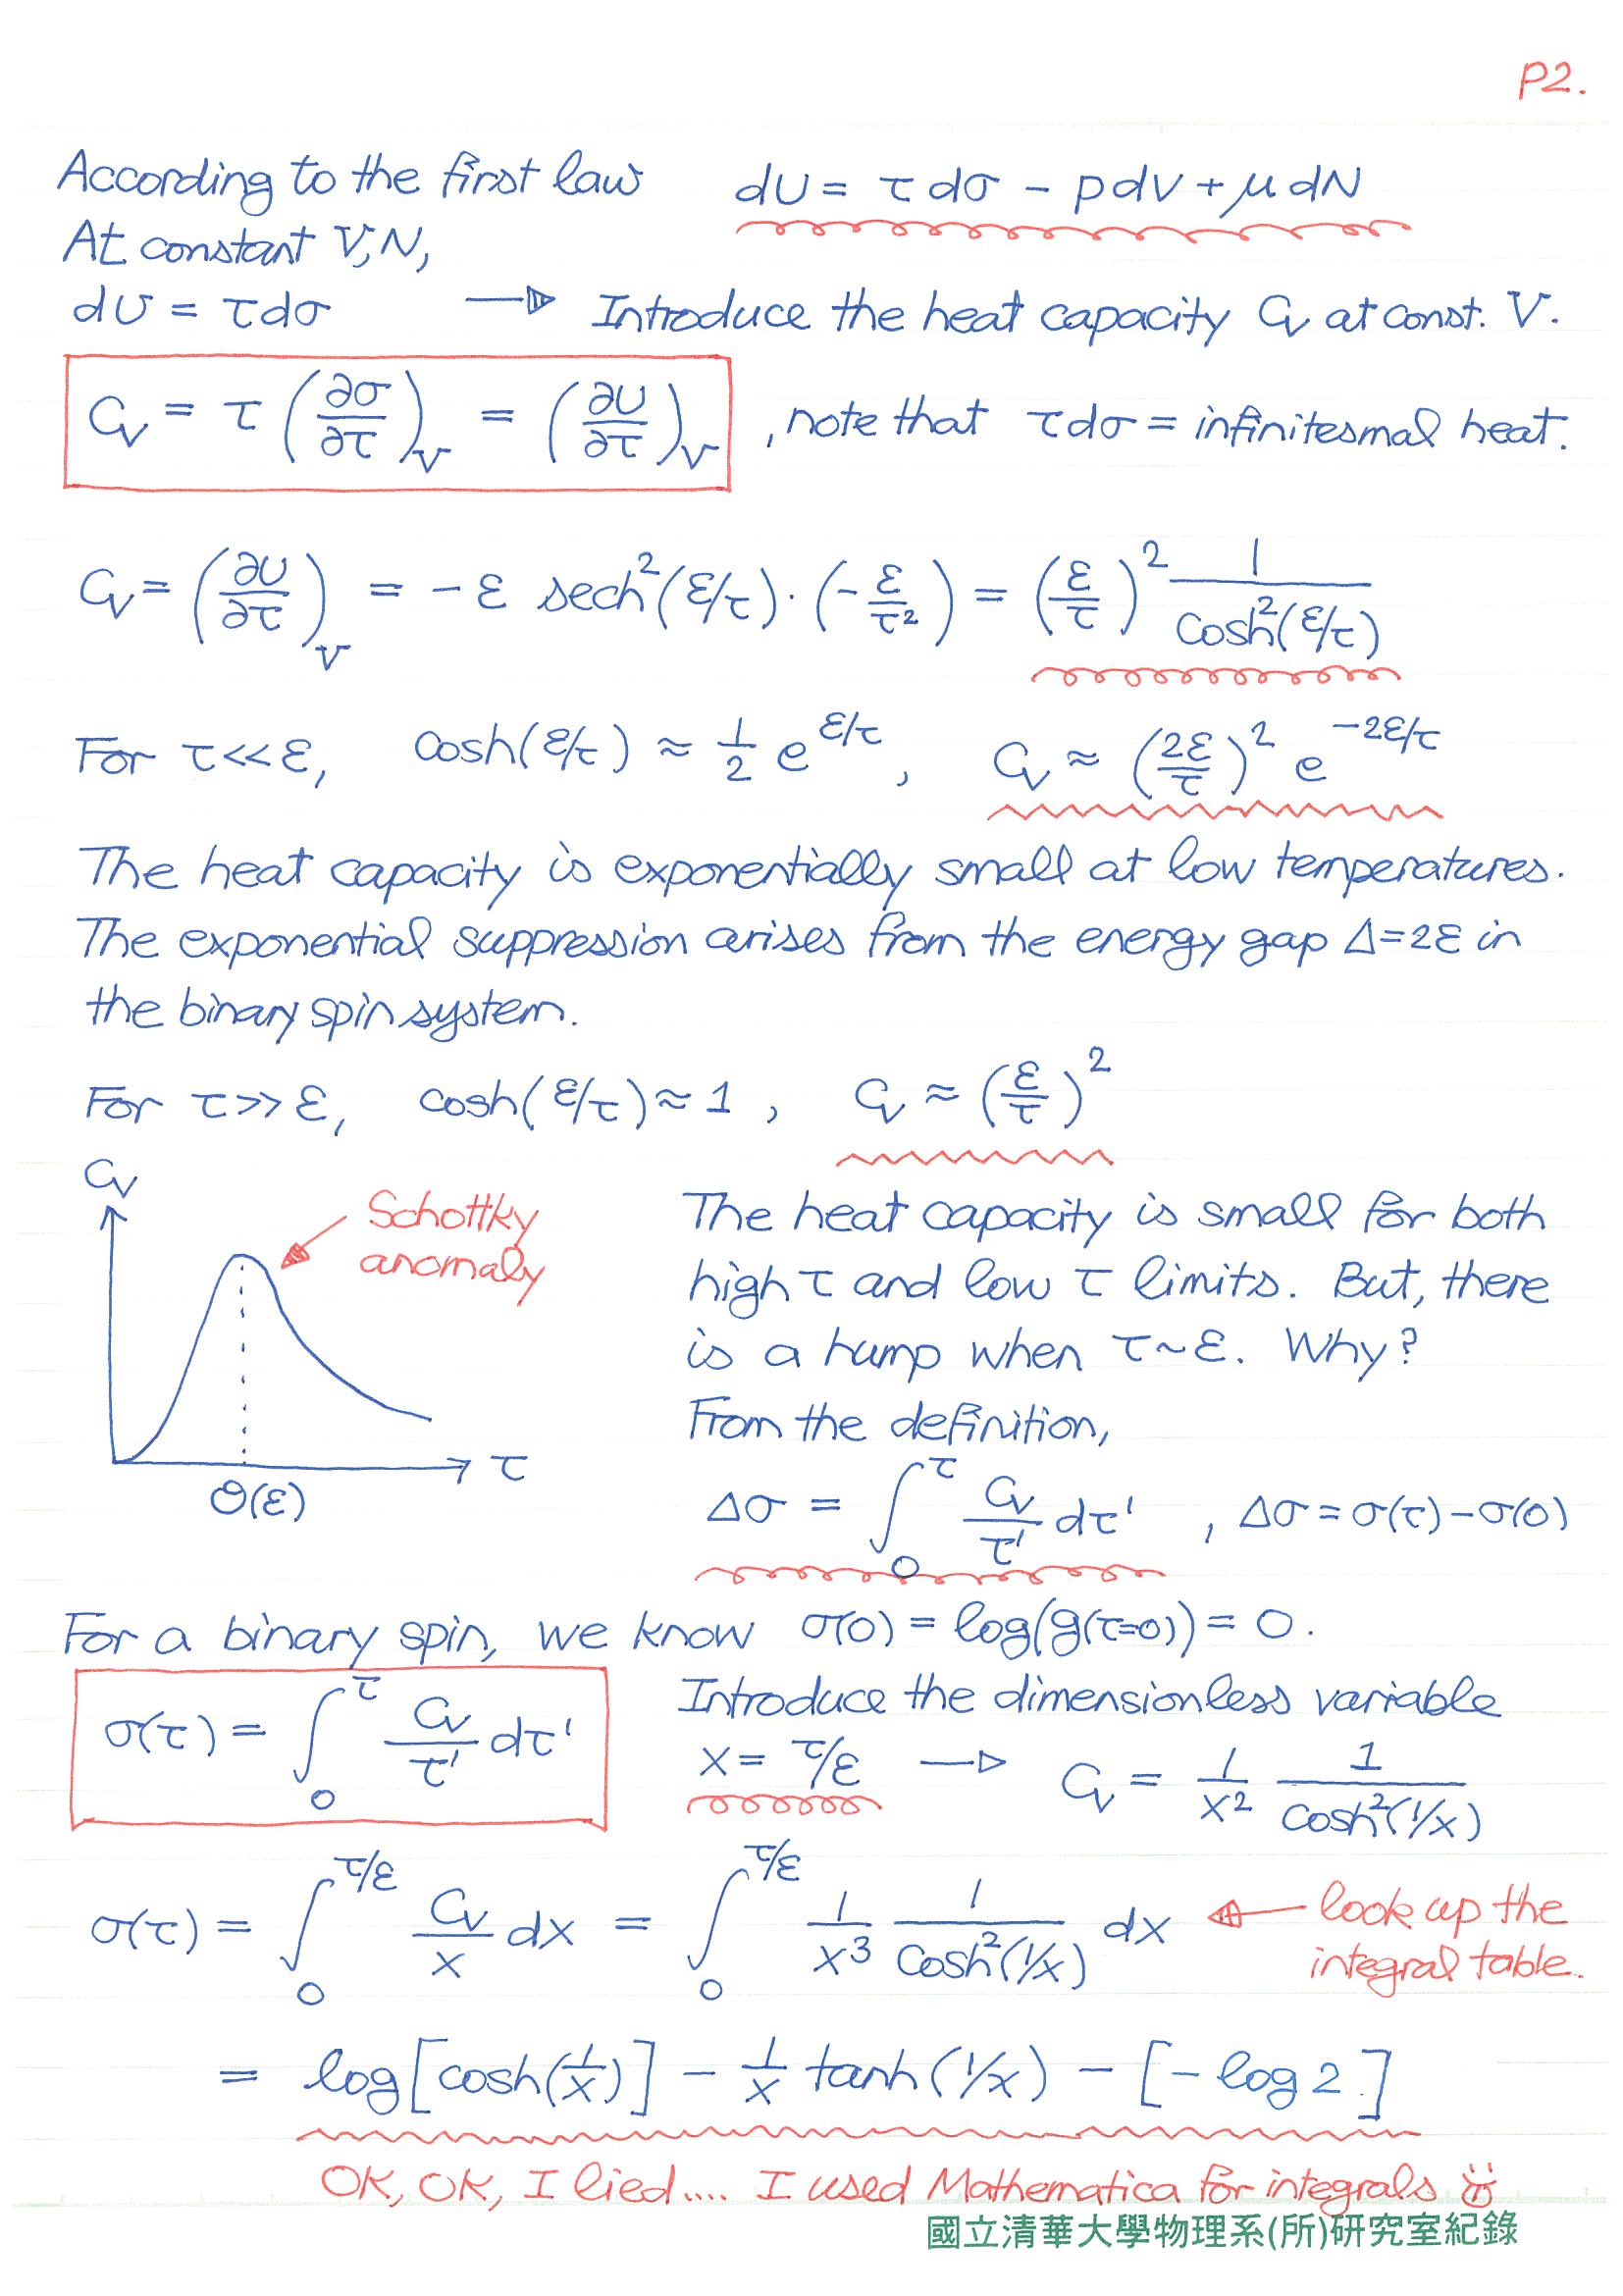 P2.
According to the first law dU = τdσ - pdV + μdN
At constant V,N,
dU = τdσ → Introduce the heat capacity C_V at const. V.
C_V = τ(∂σ/∂τ)_V = (∂U/∂τ)_V , note that τdσ = infinitesmal heat.
C_V = (∂U/∂τ)_V = -ε sech²(ε/τ)·(-ε/τ²) = (ε/τ)² 1/cosh²(ε/τ)
For τ<<ε, cosh(ε/τ) ≈ 1/2 e^{ε/τ}, C_V ≈ (2ε/τ)² e^{-2ε/τ}
The heat capacity is exponentially small at low temperatures.
The exponential suppression arises from the energy gap Δ=2ε in
the binary spin system.
For τ>>ε, cosh(ε/τ) ≈ 1, C_V ≈ (ε/τ)²
C_V
Schottky
anomaly
τ
O(ε)
The heat capacity is small for both
high τ and low τ limits. But, there
is a hump when τ~ε. Why?
From the definition,
Δσ = ∫_0^τ C_V/τ' dτ' , Δσ = σ(τ) - σ(0)
For a binary spin, we know σ(0) = log(g(τ=0)) = 0.
σ(τ) = ∫_0^τ C_V/τ' dτ'
Introduce the dimensionless variable
x = τ/ε → C_V = 1/x² 1/cosh²(1/x)
σ(τ) = ∫_0^{τ/ε} C_V/x dx = ∫_0^{τ/ε} 1/x³ 1/cosh²(1/x) dx ← look up the
integral table.
= log[cosh(1/x)] - 1/x tanh(1/x) - [-log 2]
OK, OK, I lied.... I used Mathematica for integrals
國立清華大學物理系(所)研究室紀錄